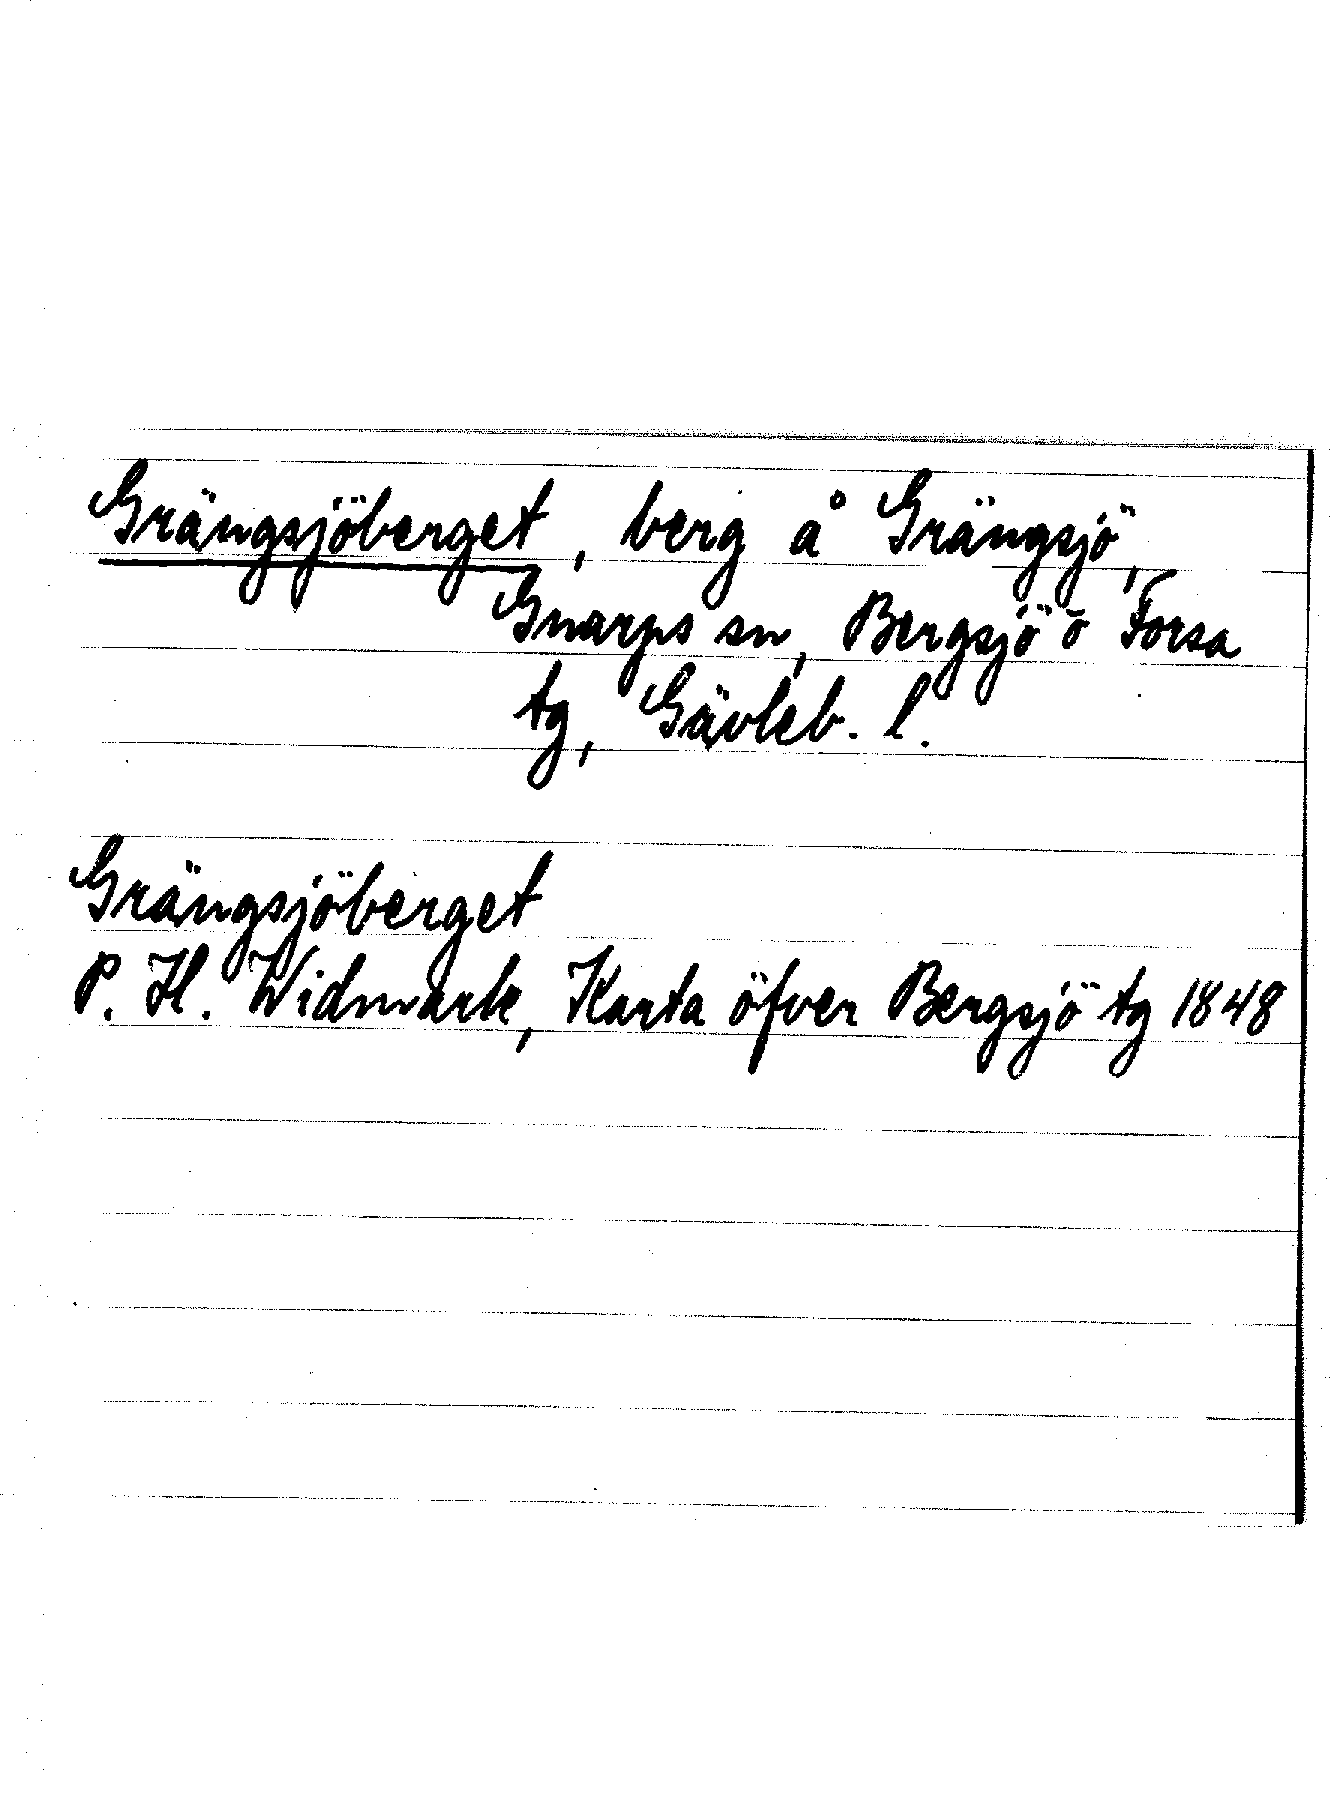 Grängsjöberget, berg å Grängsjö,
Gnarps sn, Bergsjö o Forsa
tg, Gävleb. l.
Grängsjöberget
P. H. Widmark, Karta öfver Bergsjö tg 1848